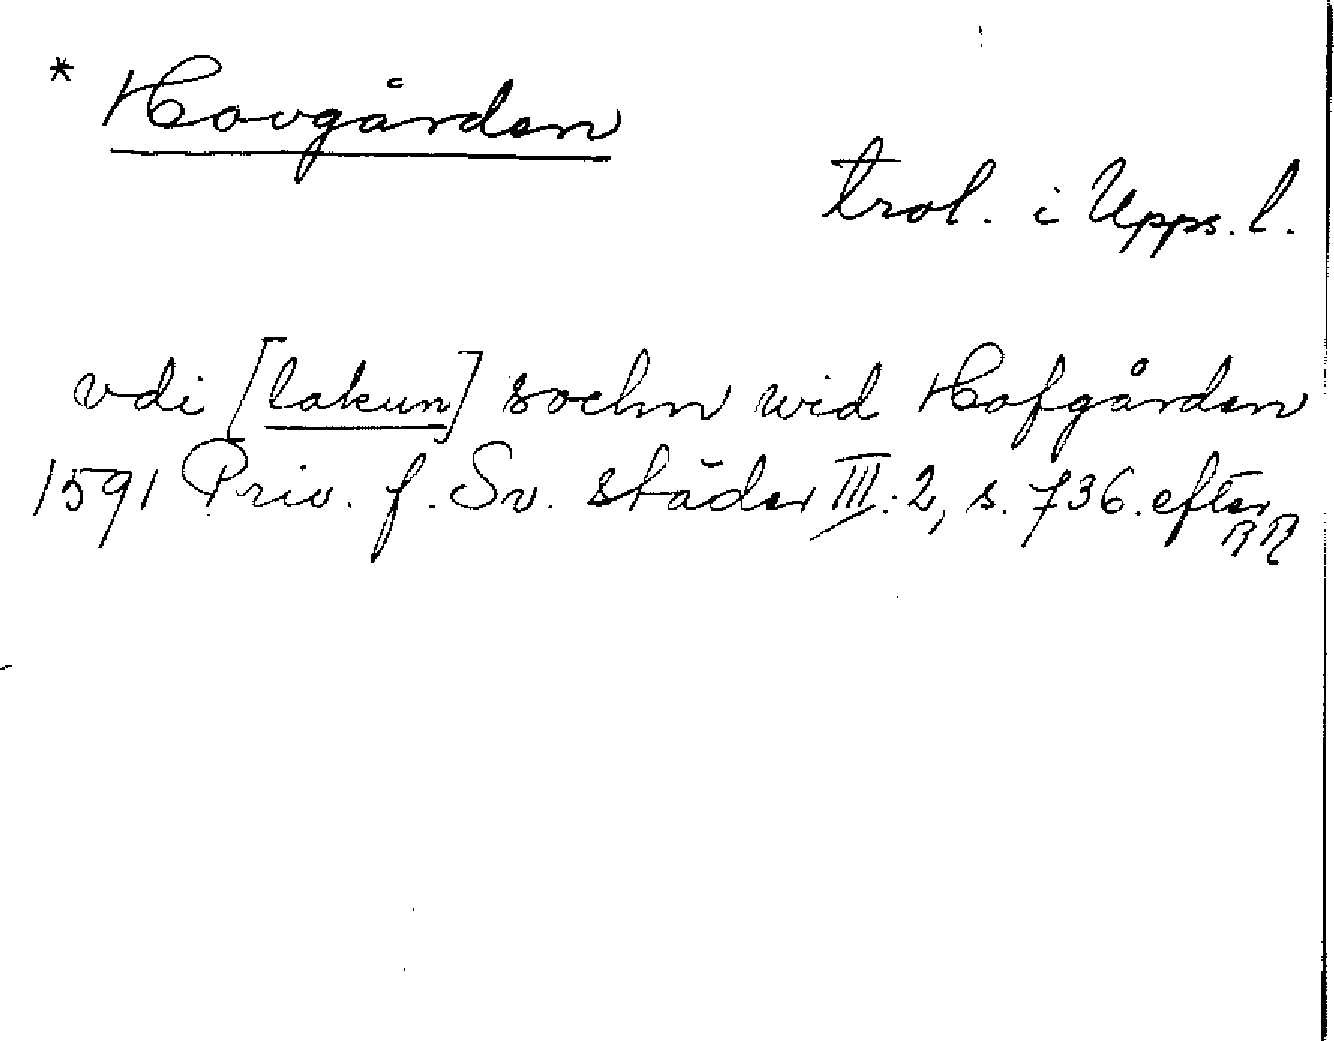 * Hovgården
trol. i Upps. l.
vdi [lakun] sochn wid Hofgården
1591 Priv. f. Sv. städer III:2, s. 736. efter
RR